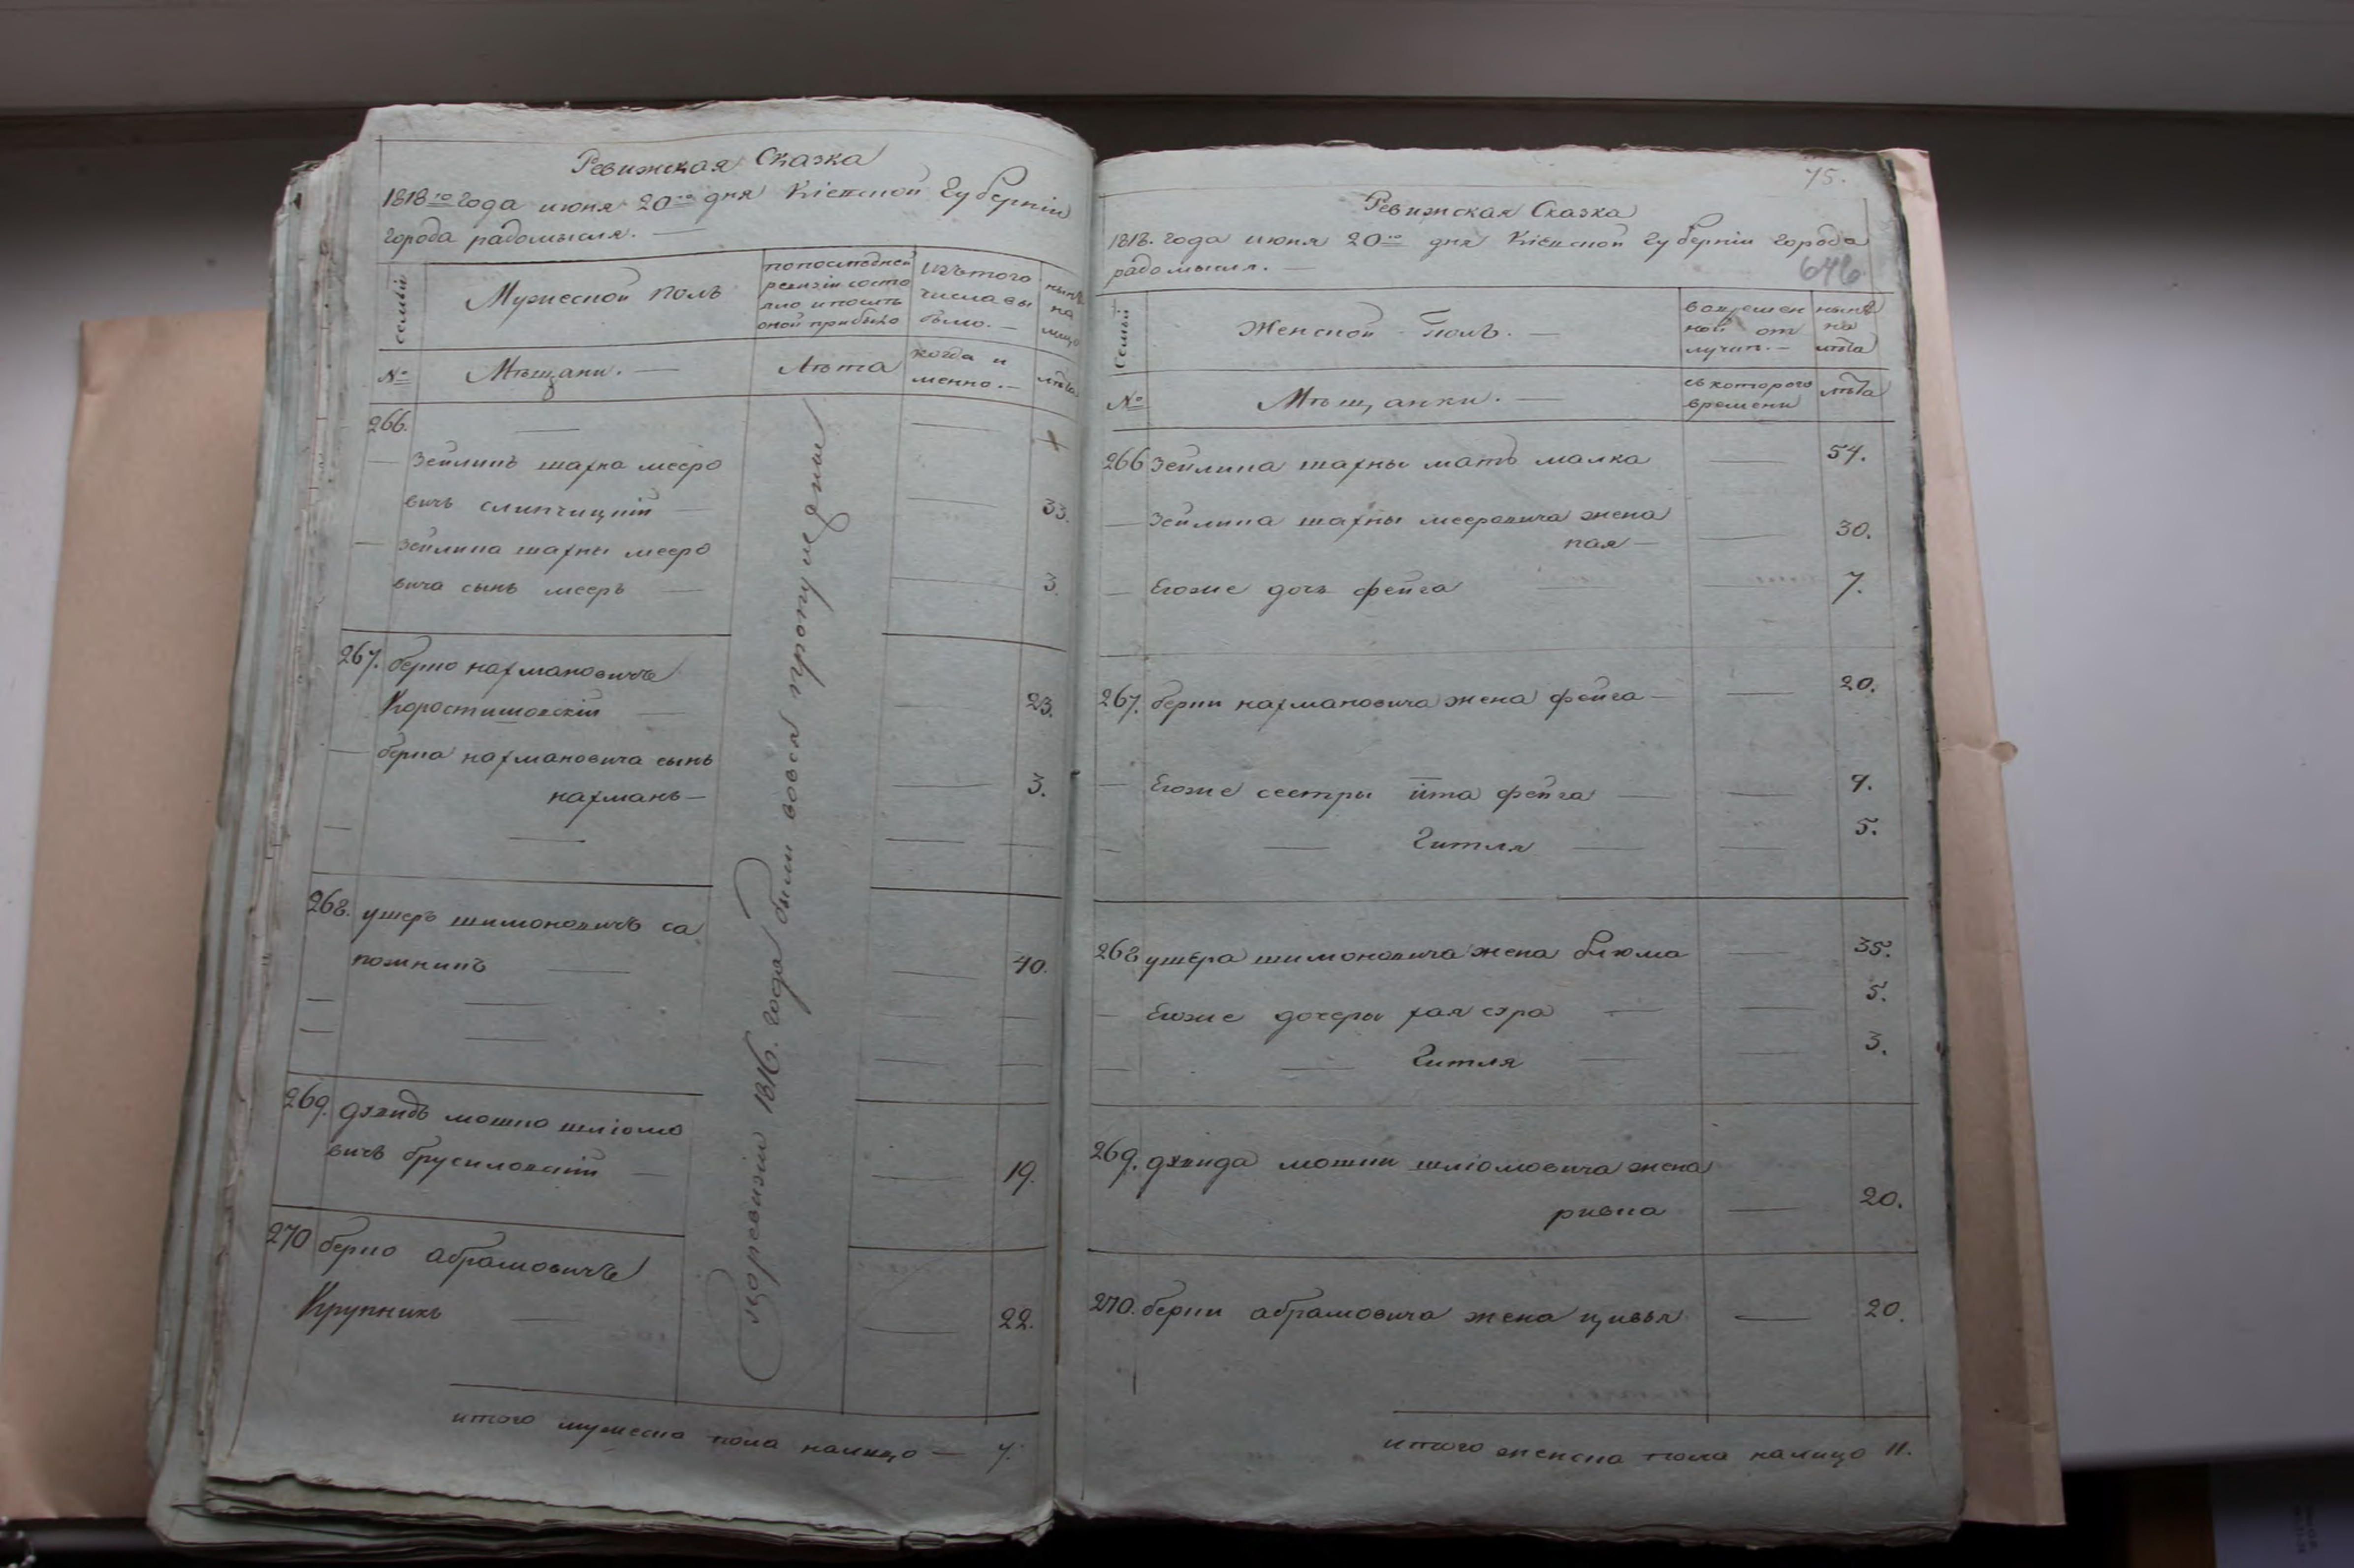 Ревижская Сказка
1818го года июня 20го дня Кіевской Губерніи
города радомысля. —
семьи
Мужеской полъ
по последней
ревизіи состо
яло и после
оной прибыло
Изъ того
числа вы
было. —
нынѣ
на
лицо
№
Мѣщани. —
Лѣта
когда и
менно. —
лѣта
266.
Зейликъ шахна мееро
вичь слипчицкій — 33.
— Зейлика шахны мееро
вича сынъ мееръ — 3.
267. берко нахмановичь
Коростишовскій — 23.
— берка нахмановича сынъ
нахманъ — 3.
268. ушеръ шимоновичъ са
пожникъ — 40.
269. давидъ мошко шліомо
вичъ брусиловскій — 19.
270 берко абрамовичь
Крупникъ — 22.
По ревизіи 1816. года были вовся пропущены
итого мужеска пола налицо — 7.
75.
Ревижская Сказка
1818. года июня 20го дня Кіевской Губерніи города
радомысля. —
646
Семьи
Женской полъ. —
во времен
ной от
лучке. —
нынѣ
на
лицо
№
Мѣщанки. —
съ которого
времени
лѣта
266 Зейлика шахны мать малка — 54.
— Зейлика шахны мееровича жена
пая — 30.
— Егоже дочь фейга — 7.
267. берки нахмановича жена фейга — 20.
— Егоже сестры ита фейга — 9.
— — Гитля — 5.
268 ушера шимоновича жена блюма — 35.
— Егоже дочеры хая сура — 5.
— — Гитля — 3.
269. давида мошки шліомовича жена
ривка — 20.
270. берки абрамовича жена цивья — 20.
итого женска пола налицо 11.